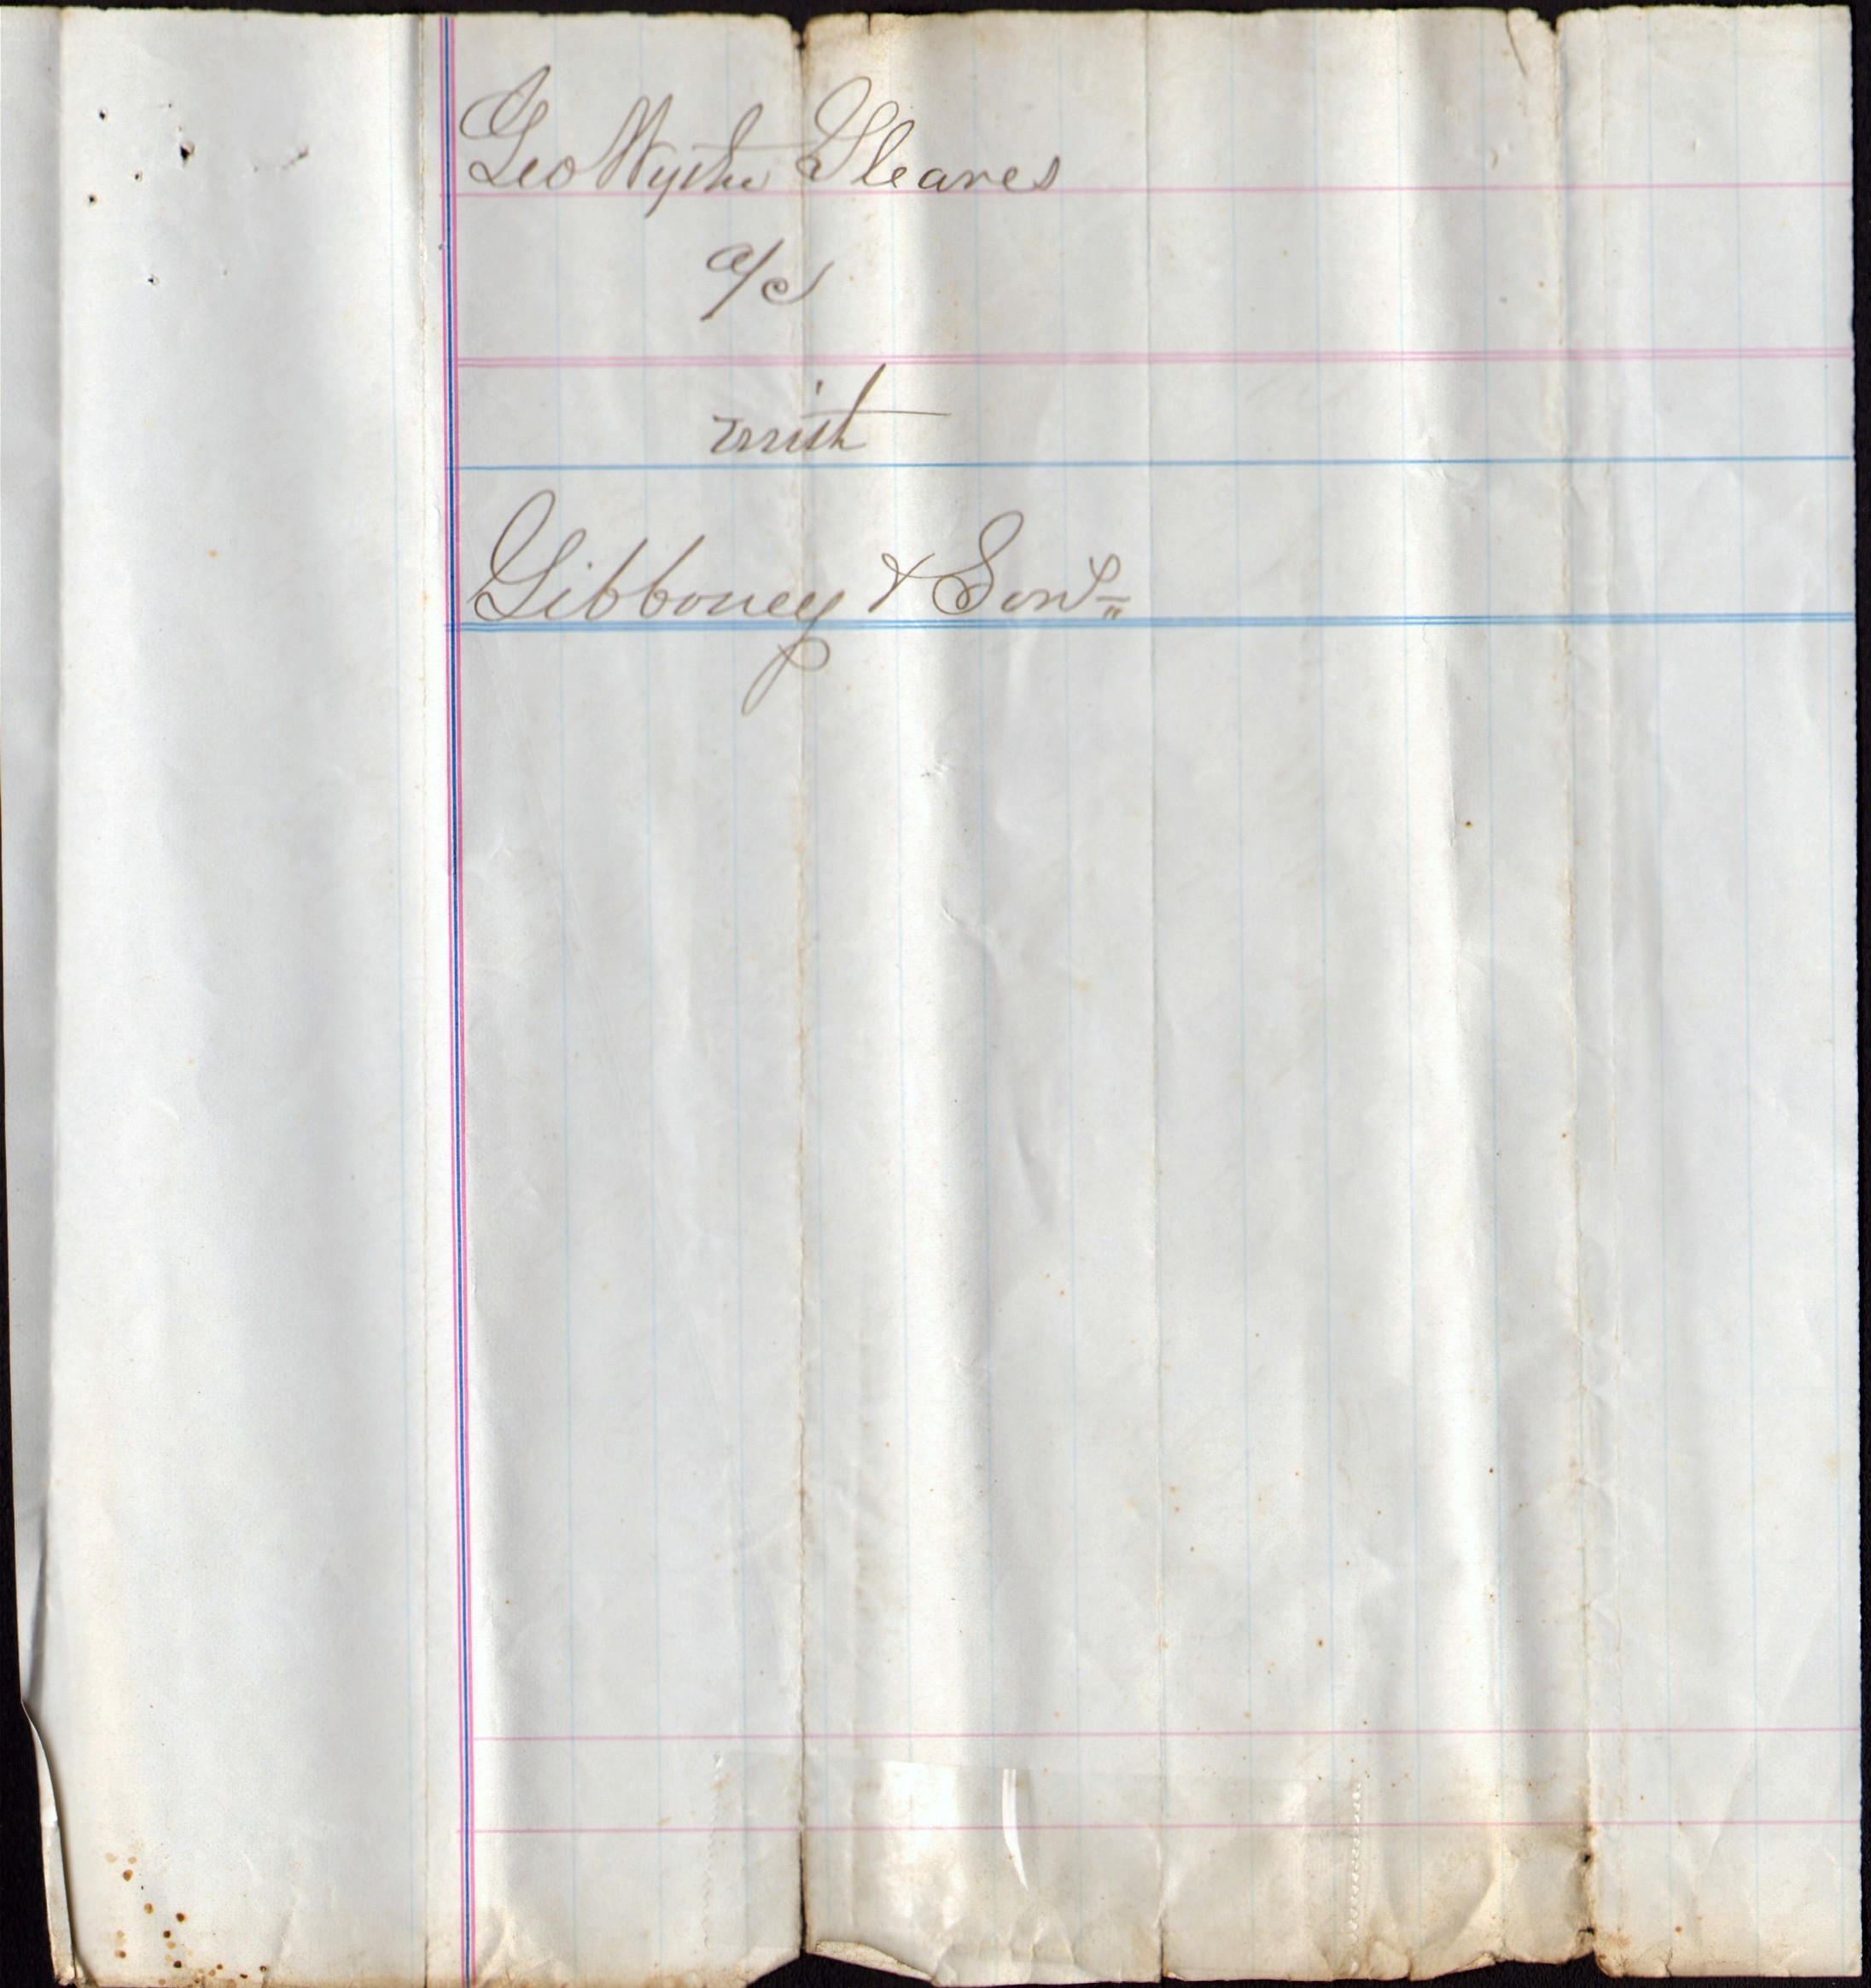 Geo Wythe Gleaves
a/c
with
Gibboney & Sons